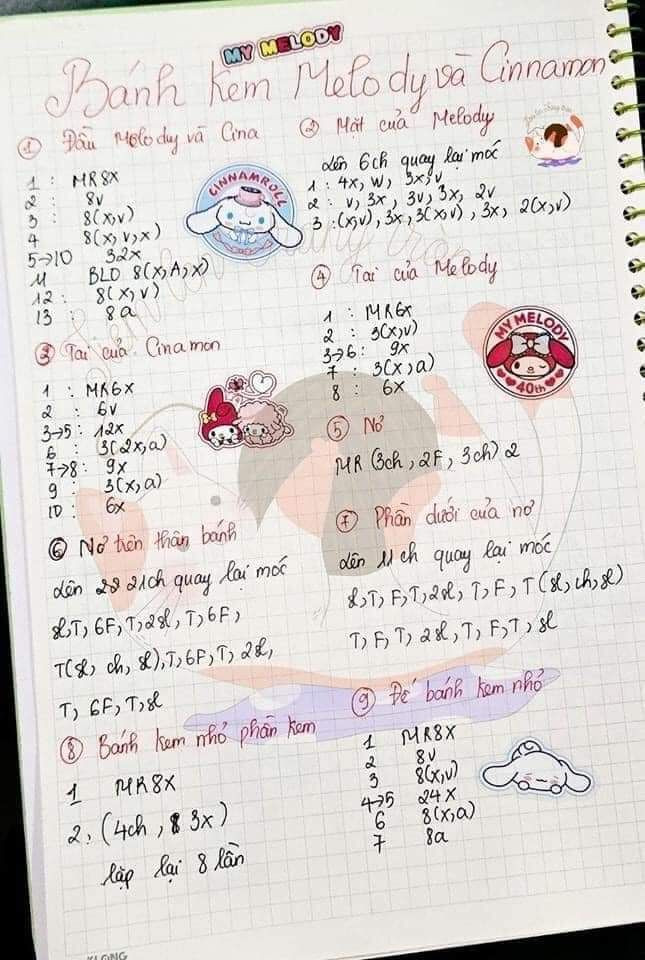 MY MELODY
Bánh kem Melody và Cinnamon
① Đầu Melody và Cina
1 : MR8X
2 : 8v
3 : 8(x,v)
4 8(x,v,x)
5→10 32x
11 BLO 8(x,A,x)
12 : 8(x,v)
13 : 8a
CINNAMOROLL
② Mặt của Melody
Lên 6ch quay lại móc
1 : 4x, W, 3x, v
2 : v, 3x, 3v, 3x, 2v
3 : (x,v), 3x, 3(x,v), 3x, 2(x,v)
③ Tai của Cinamon
1 : MR6x
2 : 6v
3→5 : 12x
6 : 3(2x,a)
7→8 : 9x
9 : 3(x,a)
10 : 6x
④ Tai của Melody
1 : MR6x
2 : 3(x,v)
3→6 : 9x
7 : 3(x,a)
8 : 6x
MY MELODY
40th
⑤ Nơ
MR (3ch, 2F, 3ch) 2
⑥ Nơ trên thân bánh
Lên 22 21ch quay lại móc
sl,T, 6F, T, 2sl, T, 6F,
T(sl, ch, sl), T, 6F, T, 2sl,
T, 6F, T, sl
⑦ Phần dưới của nơ
Lên 11 ch quay lại móc
sl, T, F, T, 2sl, T, F, T (sl, ch, sl)
T, F, T, 2sl, T, F, T, sl
⑧ Bánh kem nhỏ phần kem
1 MR8X
2. (4ch, 3x)
lặp lại 8 lần
⑨ Đế bánh kem nhỏ
1 MR8X
2 8v
3 8(x,v)
4→5 24x
6 8(x,a)
7 8a
KLONG